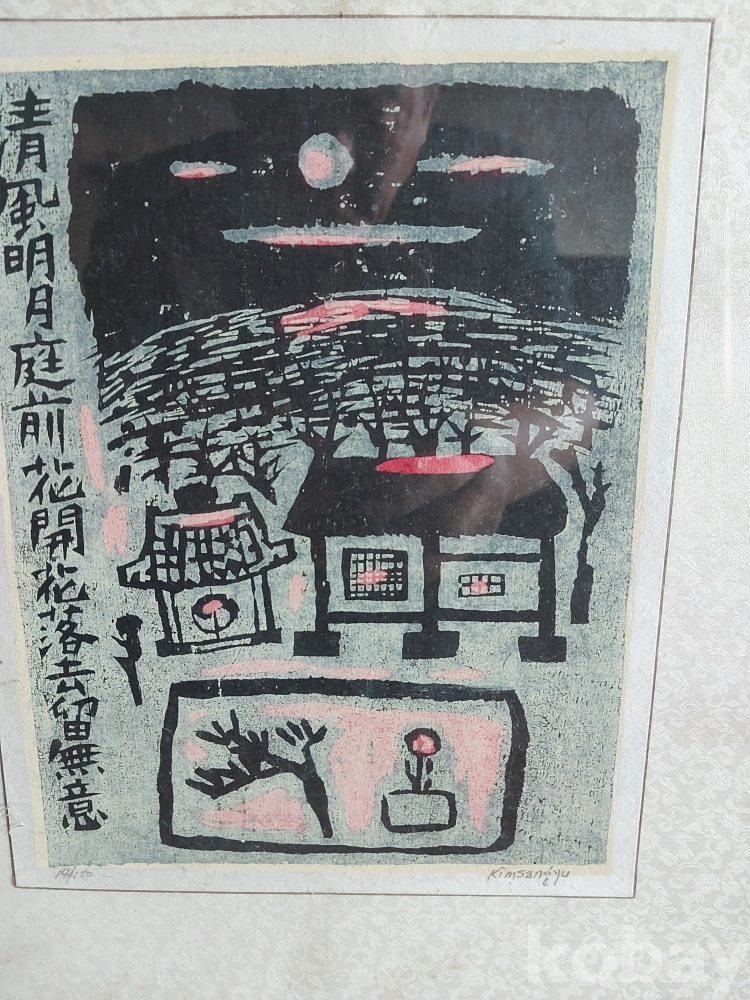 清風明月庭前花開花落去留無意
14/150
Kimsangyu
kobay